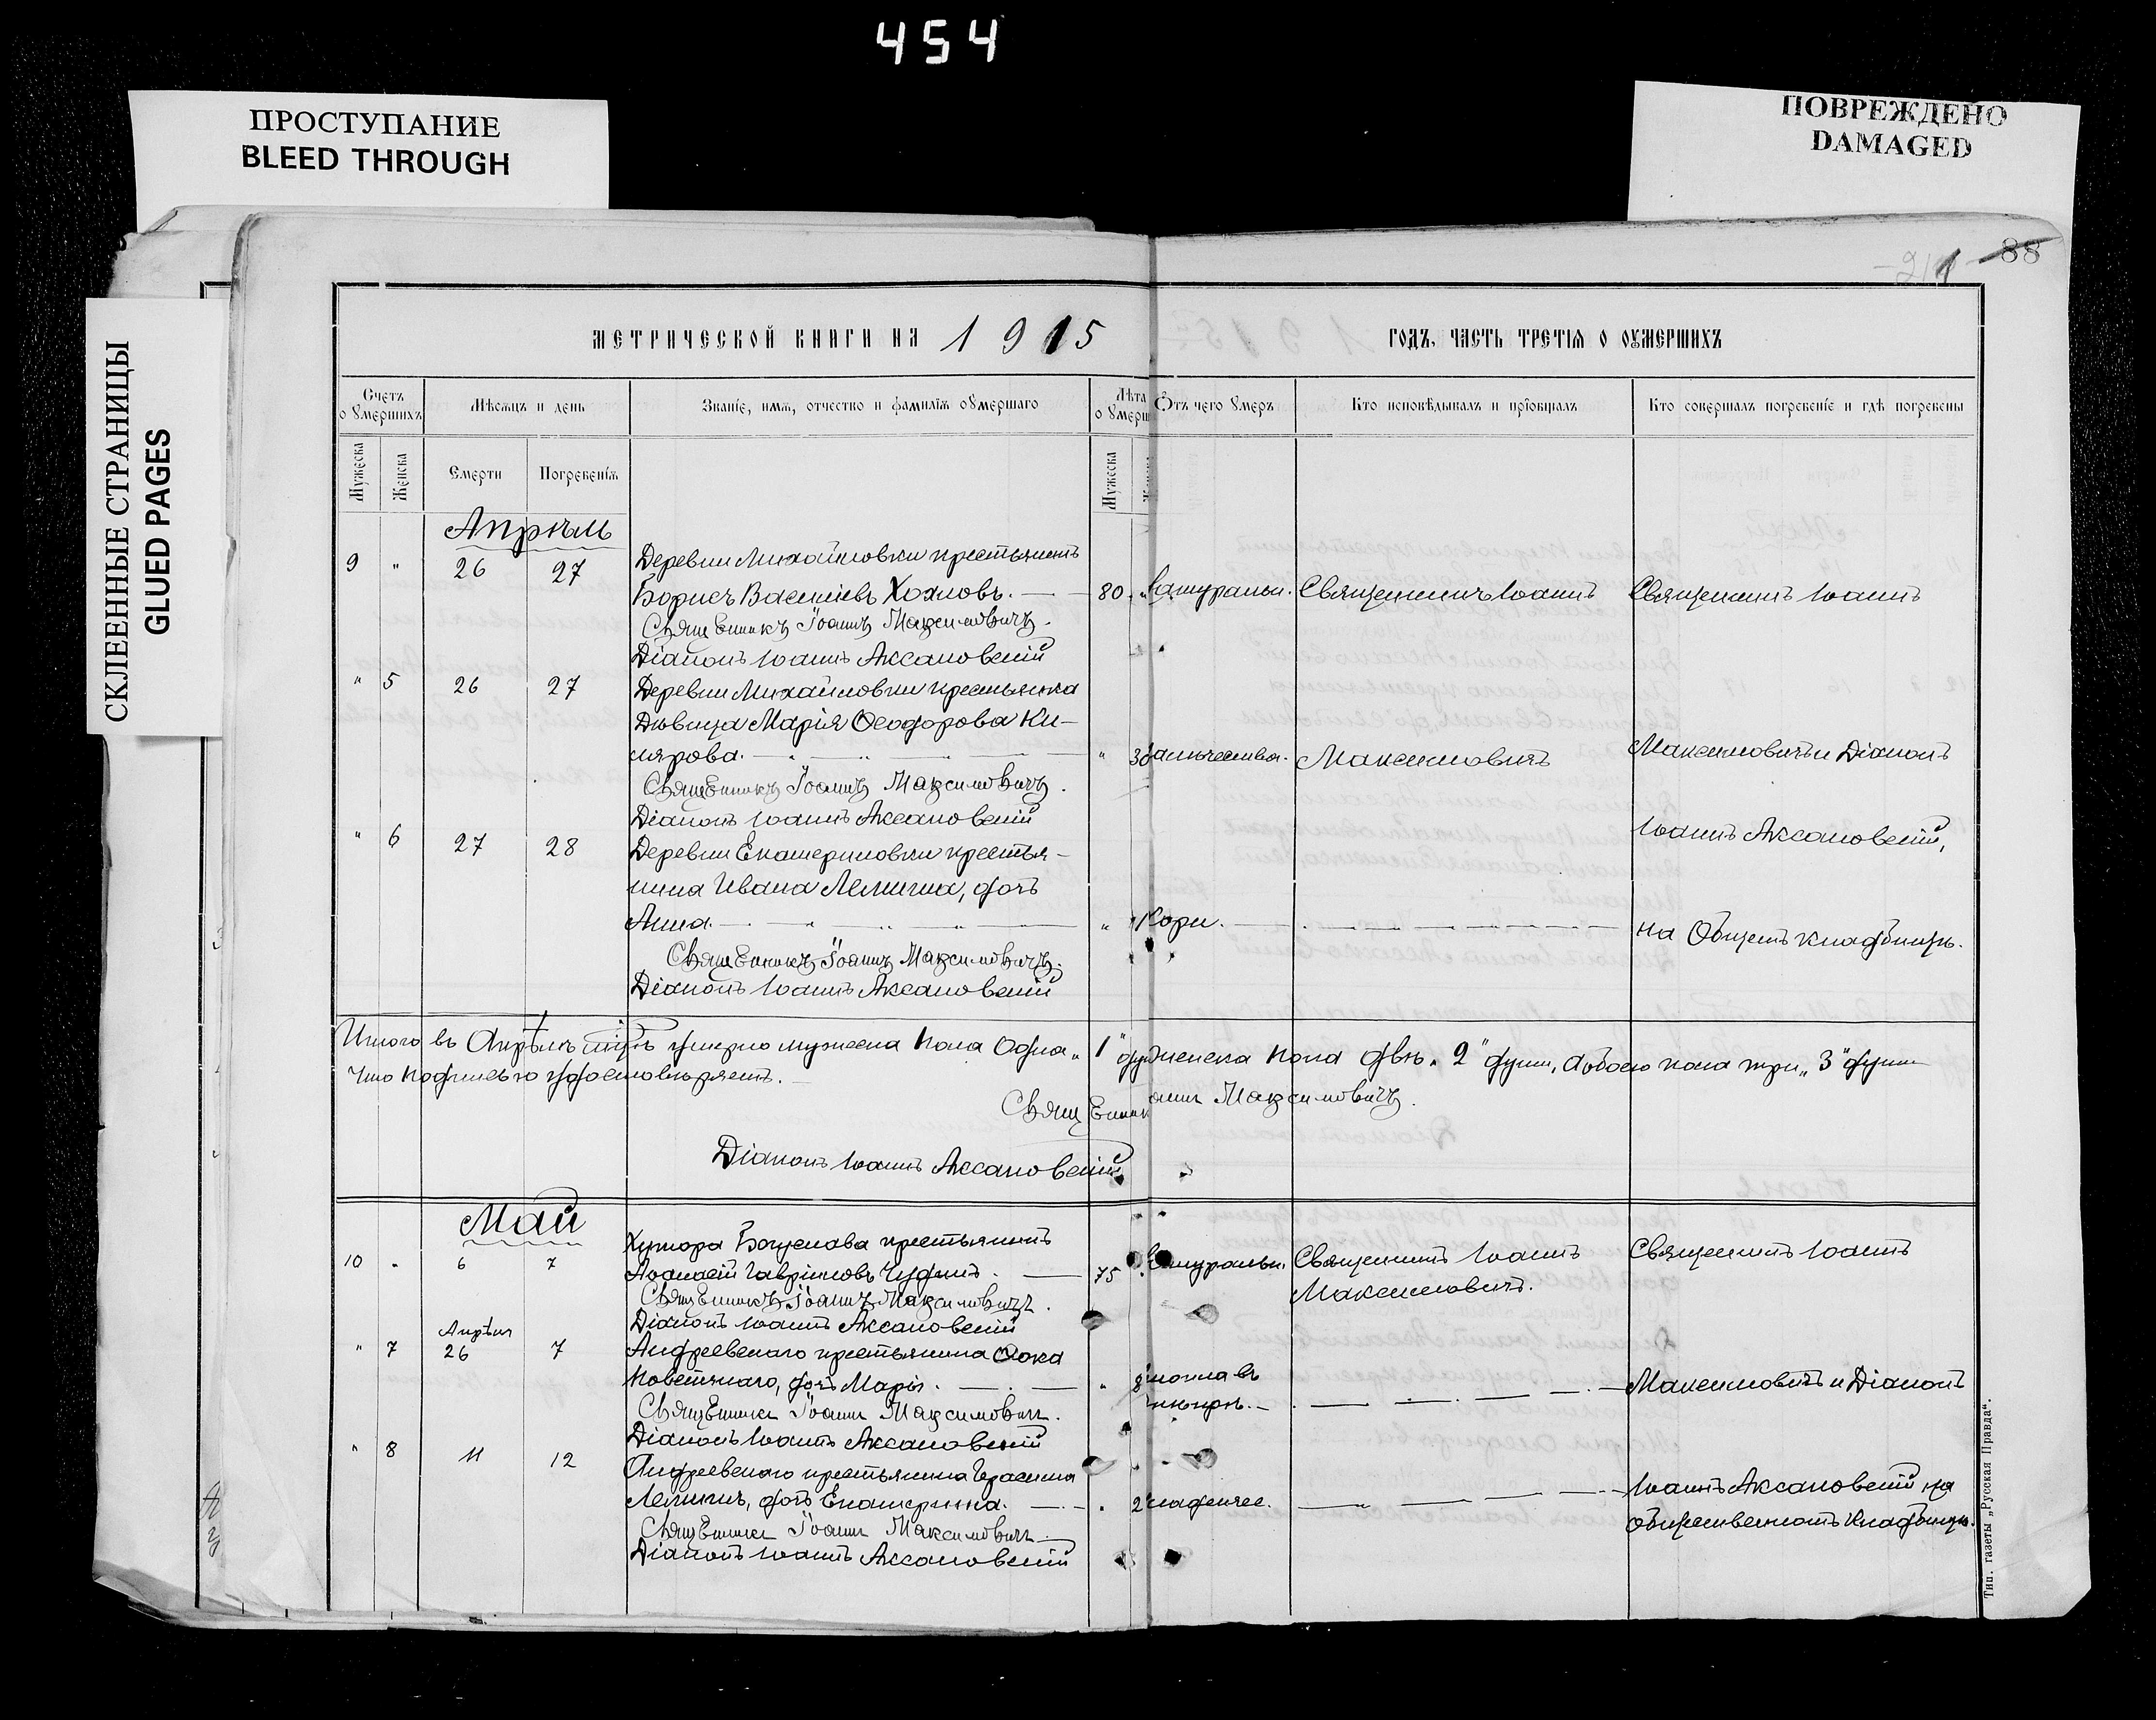 454
ПРОСТУПАНИЕ
BLEED THROUGH
ПОВРЕЖДЕНО
DAMAGED
СКЛЕЕННЫЕ СТРАНИЦЫ
GLUED PAGES
88
МЕТРИЧЕСКОЙ КНИГИ НА 1915 ГОДЪ, ЧАСТЬ ТРЕТІЯ О ОУМЕРШИХЪ
Счетъ о умершихъ
Мѣсяцъ и день
Званіе, имя, отчество и фамилія оумершаго
Лѣта о умерш
Отъ чего умеръ
Кто исповѣдывалъ и пріобщалъ
Кто совершалъ погребеніе и гдѣ погребены
Мужеска
Женска
Смерти
Погребенія
Мужеска
Апрѣль
9 " 26 27 Деревни Михайловки крестьянинъ
Борисъ Васильевъ Хохловъ. 80 Священникъ Іоаннъ Священникъ Іоаннъ
Священникъ Іоаннъ Максимовичъ.
Діаконъ Іоаннъ Аксановскій
" 5 26 27 Деревни Михайловки крестьянка
Дѣвица Марія Ѳеодорова Ки-
лярова. Максимовичъ Максимовичъ и Діаконъ
Священникъ Іоаннъ Максимовичъ.
Діаконъ Іоаннъ Аксановскій
Іоаннъ Аксановскій,
" 6 27 28 Деревни Екатериновки крестья-
нина Ивана Лемиша, дочь
Анна. " Кори. на Общемъ кладбищѣ.
Священникъ Іоаннъ Максимовичъ.
Діаконъ Іоаннъ Аксановскій
Итого въ Апрѣлѣ умерло мужеска пола Одна „1" женска пола двѣ „2" души, Обоего пола три „3" души
Что подписью удостовѣряемъ.
Священник оаннъ Максимовичъ.
Діаконъ Іоаннъ Аксановскій
Май
10 " 6 7 Хутора Богуслава крестьянинъ
Аѳанасій Гавріиловъ Чудинъ. 75 Священникъ Іоаннъ Священникъ Іоаннъ
Максимовичъ.
Священникъ Іоаннъ Максимовичъ.
Діаконъ Іоаннъ Аксановскій
Апрѣля
" 7 26 7 Андреевскаго крестьянина Ѳока
дочь Марія. Максимовичъ и Діаконъ
Священникъ Іоаннъ Максимовичъ.
Діаконъ Іоаннъ Аксановскій
" 8 11 12 Андреевскаго крестьянина Герасима
Лемишъ, дочь Екатерина. Іоаннъ Аксановскій, на
Общественномъ Кладбищѣ.
Священникъ Іоаннъ Максимовичъ
Діаконъ Іоаннъ Аксановскій
Тип. газеты „Русская Правда".